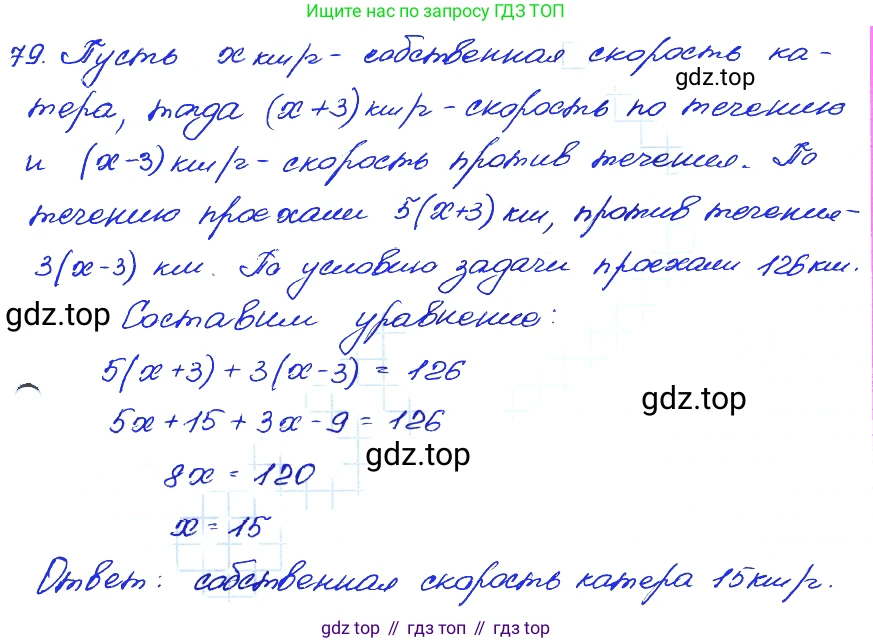 Ищите нас по запросу ГДЗ ТОП
79. Пусть x км/ч - собственная скорость ка-
gdz.top
тера, тогда (x+3) км/ч - скорость по течению
и (x-3) км/ч - скорость против течения. По
течению проехали 5(x+3) км, против течения -
3(x-3) км. По условию задачи проехали 126 км.
gdz.top Составим уравнение:
5(x+3) + 3(x-3) = 126
gdz.top
5x + 15 + 3x - 9 = 126
gdz.top
8x = 120
x = 15
Ответ: собственная скорость катера 15 км/ч.
gdz top // гдз топ // gdz top